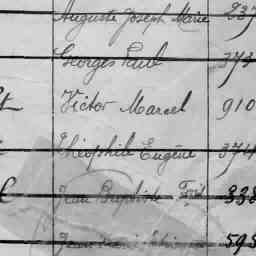 Auguste Joseph Marie 237
Georges Paul 373
Victor Marcel 910
Théophile Eugène 374
Jean Baptiste 338
Jean 595